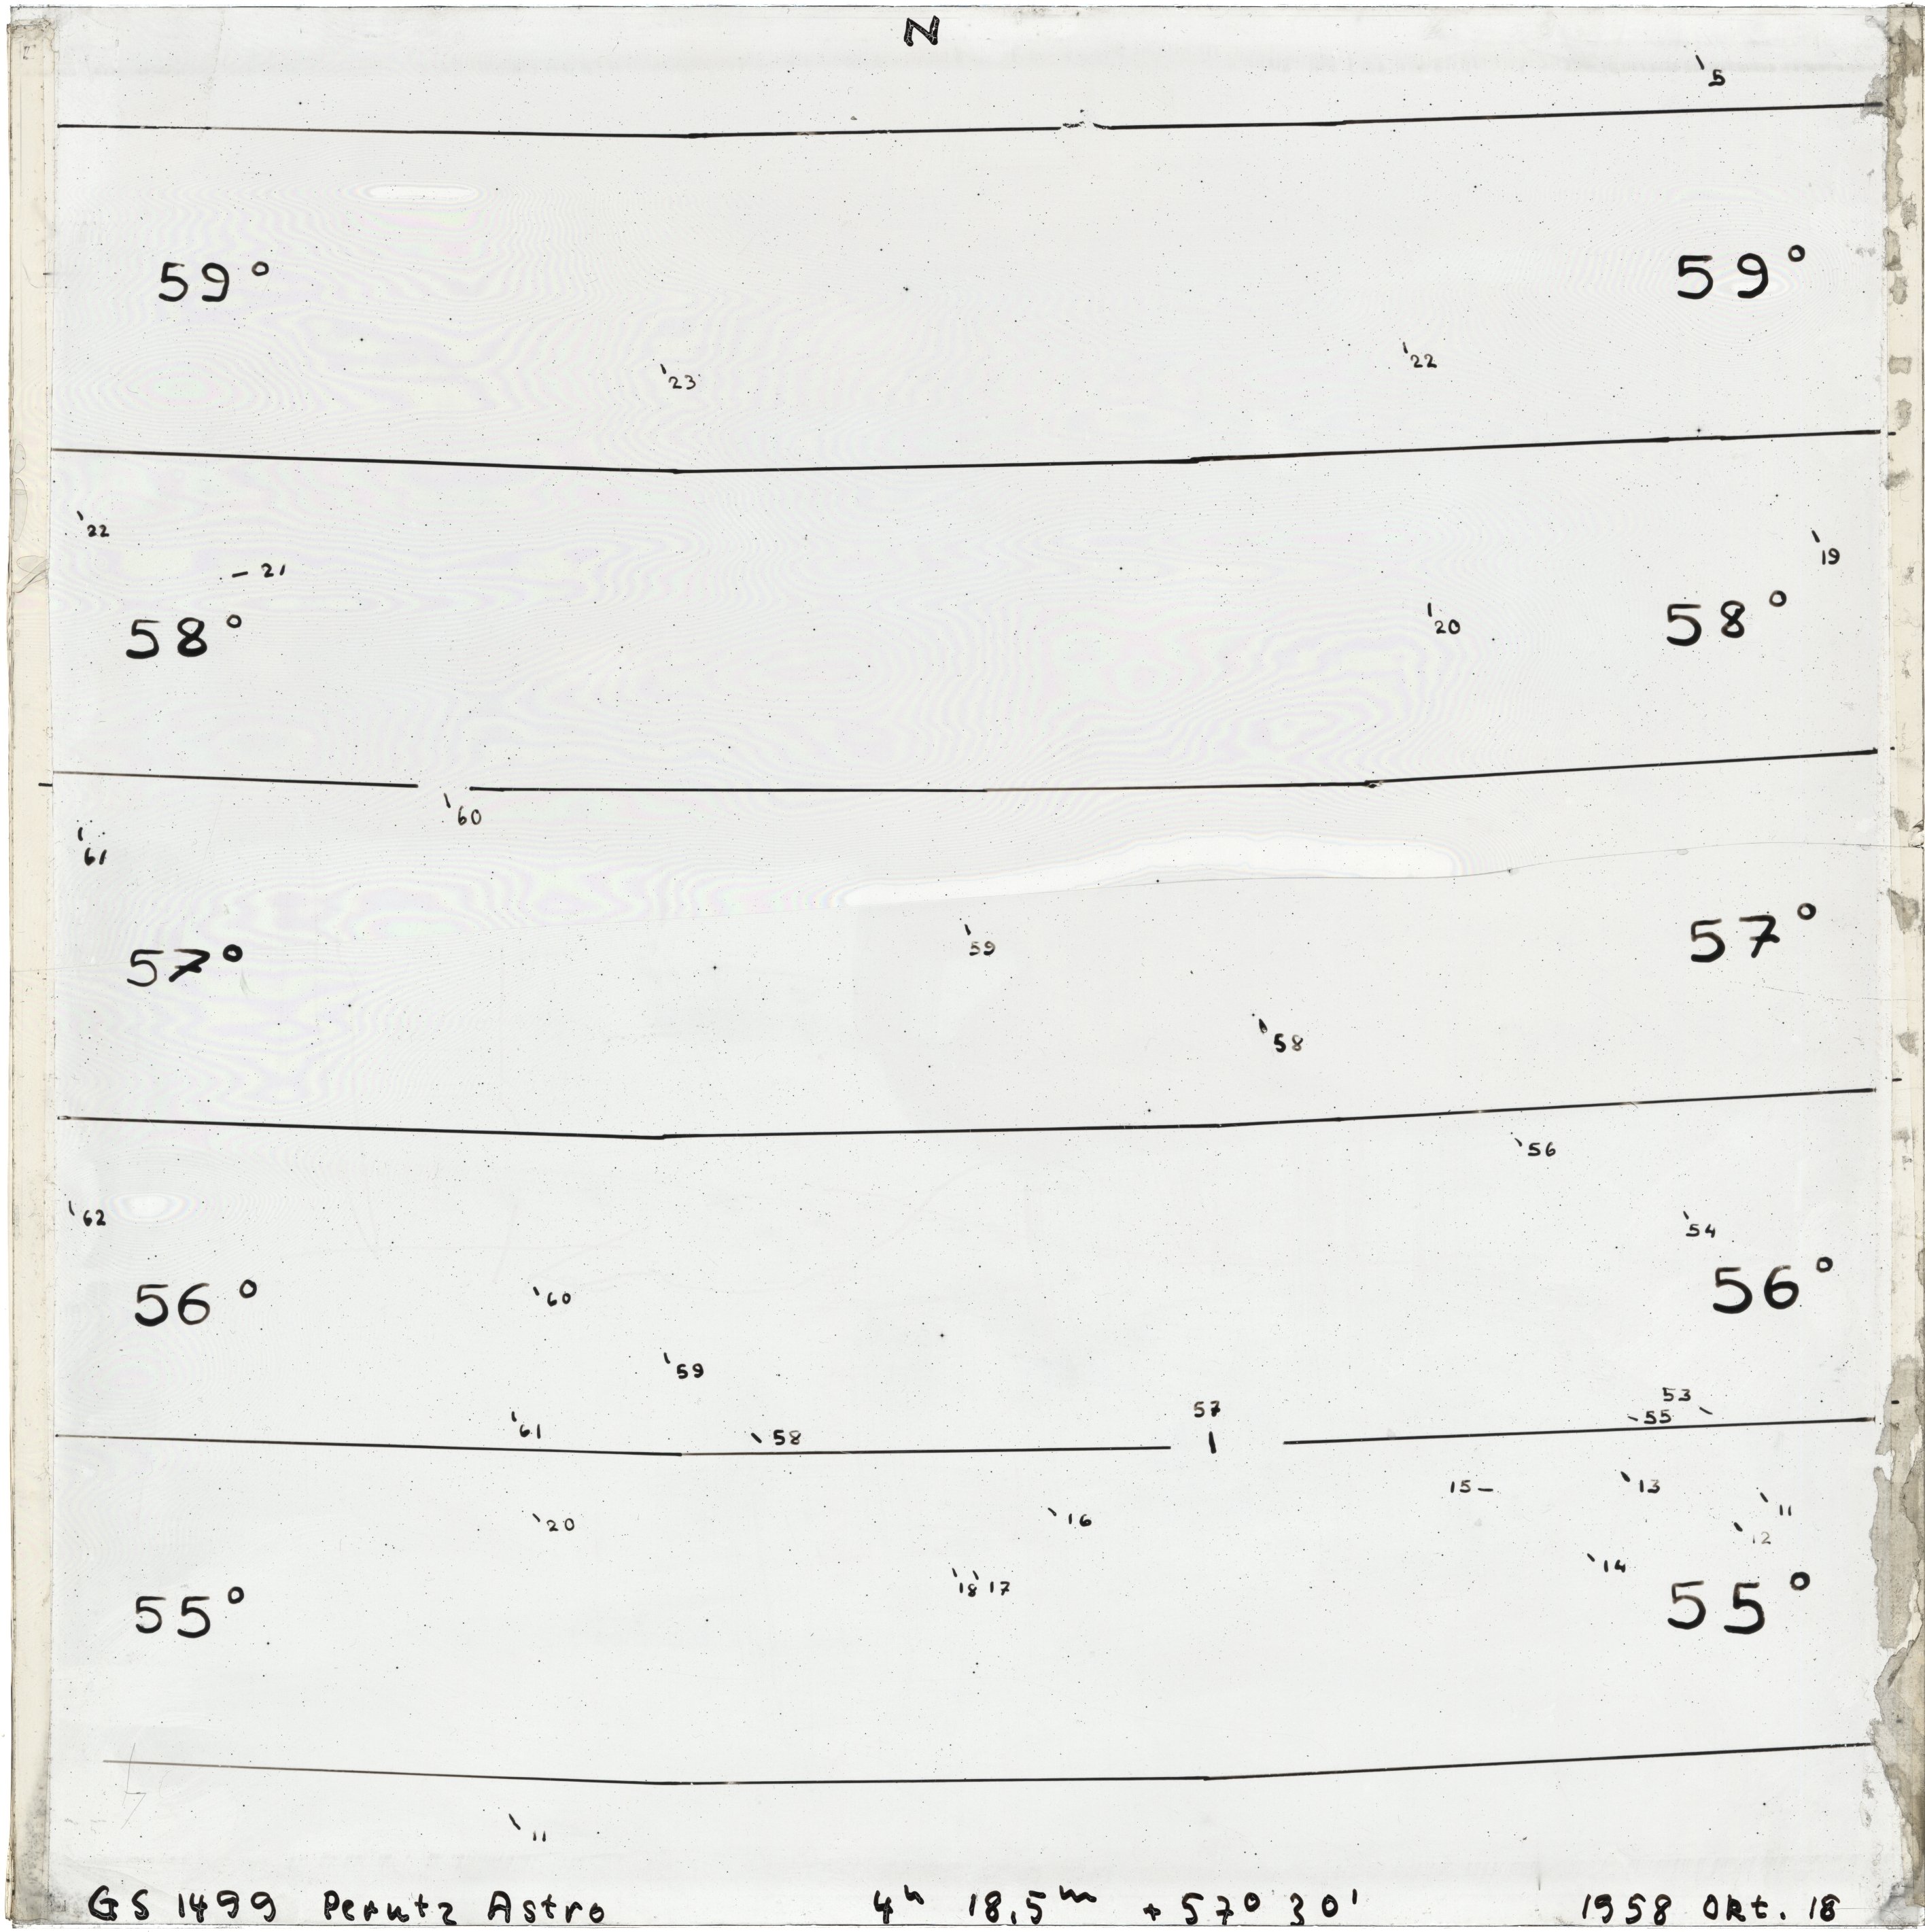 N
5
59° 59°
22
23
22
19
21
20
58° 58°
60
61
59
57° 57°
58
56
62
54
56° 56°
60
59
53
57
55
61
58
15
13
11
20
16
12
14
18 17
55° 55°
11
GS 1499 Perutz Astro 4h 18,5m +57° 30' 1958 Okt. 18